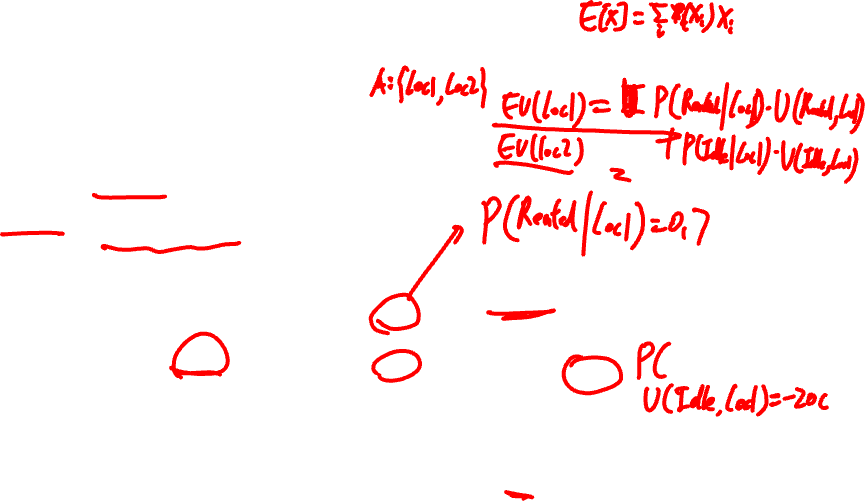 E[x] = Σ_i P(x_i) x_i
A: {Loc1, Loc2}
EU(Loc1) = P(Rented|Loc1)·U(Rented, Loc1)
+ P(Idle|Loc1)·U(Idle, Loc1)
EU(Loc2) =
P(Rented|Loc1) = 0.7
P(
U(Idle, Loc1) = -200